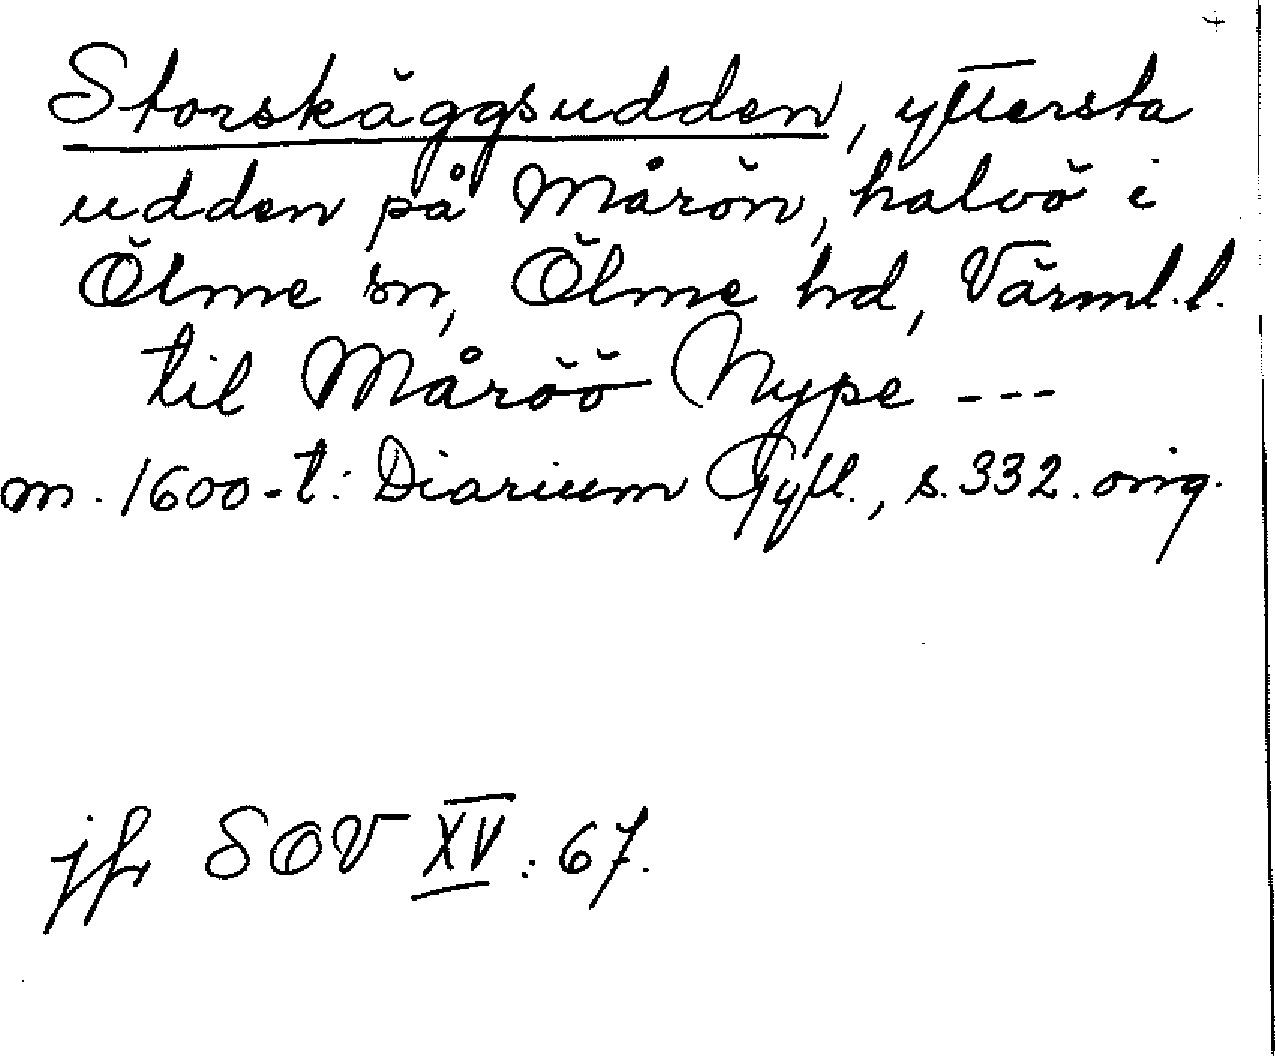 Storskäggsudden, yttersta
udden på Mårön, halvö i
Ölme sn, Ölme hd, Värml.l.
til Måröö Nype ---
m. 1600-t: Diarium Gyll., s. 332. orig.
jfr SOV XV: 67.